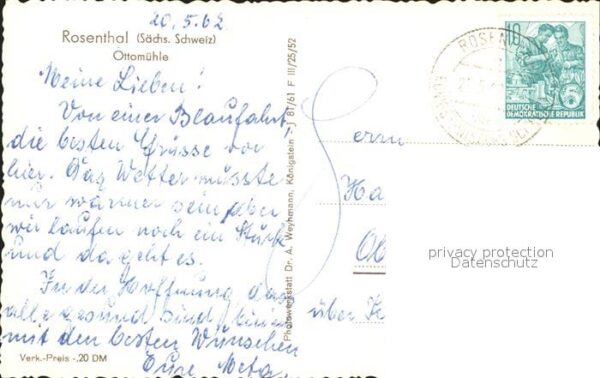 20.5.62
Rosenthal (Sächs. Schweiz)
Ottomühle
Meine Lieben!
Von einer Blaufahrt
die besten Grüsse von
hier. Das Wetter müsste
nur wärmer sein, aber
wir laufen noch ein Stück
und da geht es.
In der Hoffnung das
alle gesund sind
mit den besten Wünschen
Eure Meta.
Verk.-Preis -,20 DM
Photowerkstatt Dr. A. Weyhmann, Königstein - J 81/61 F III/25/52
ROSEN
10
DEUTSCHE
DEMOKRATISCHE REPUBLIK
Herrn
Ha
Ob
über
privacy protection
Datenschutz